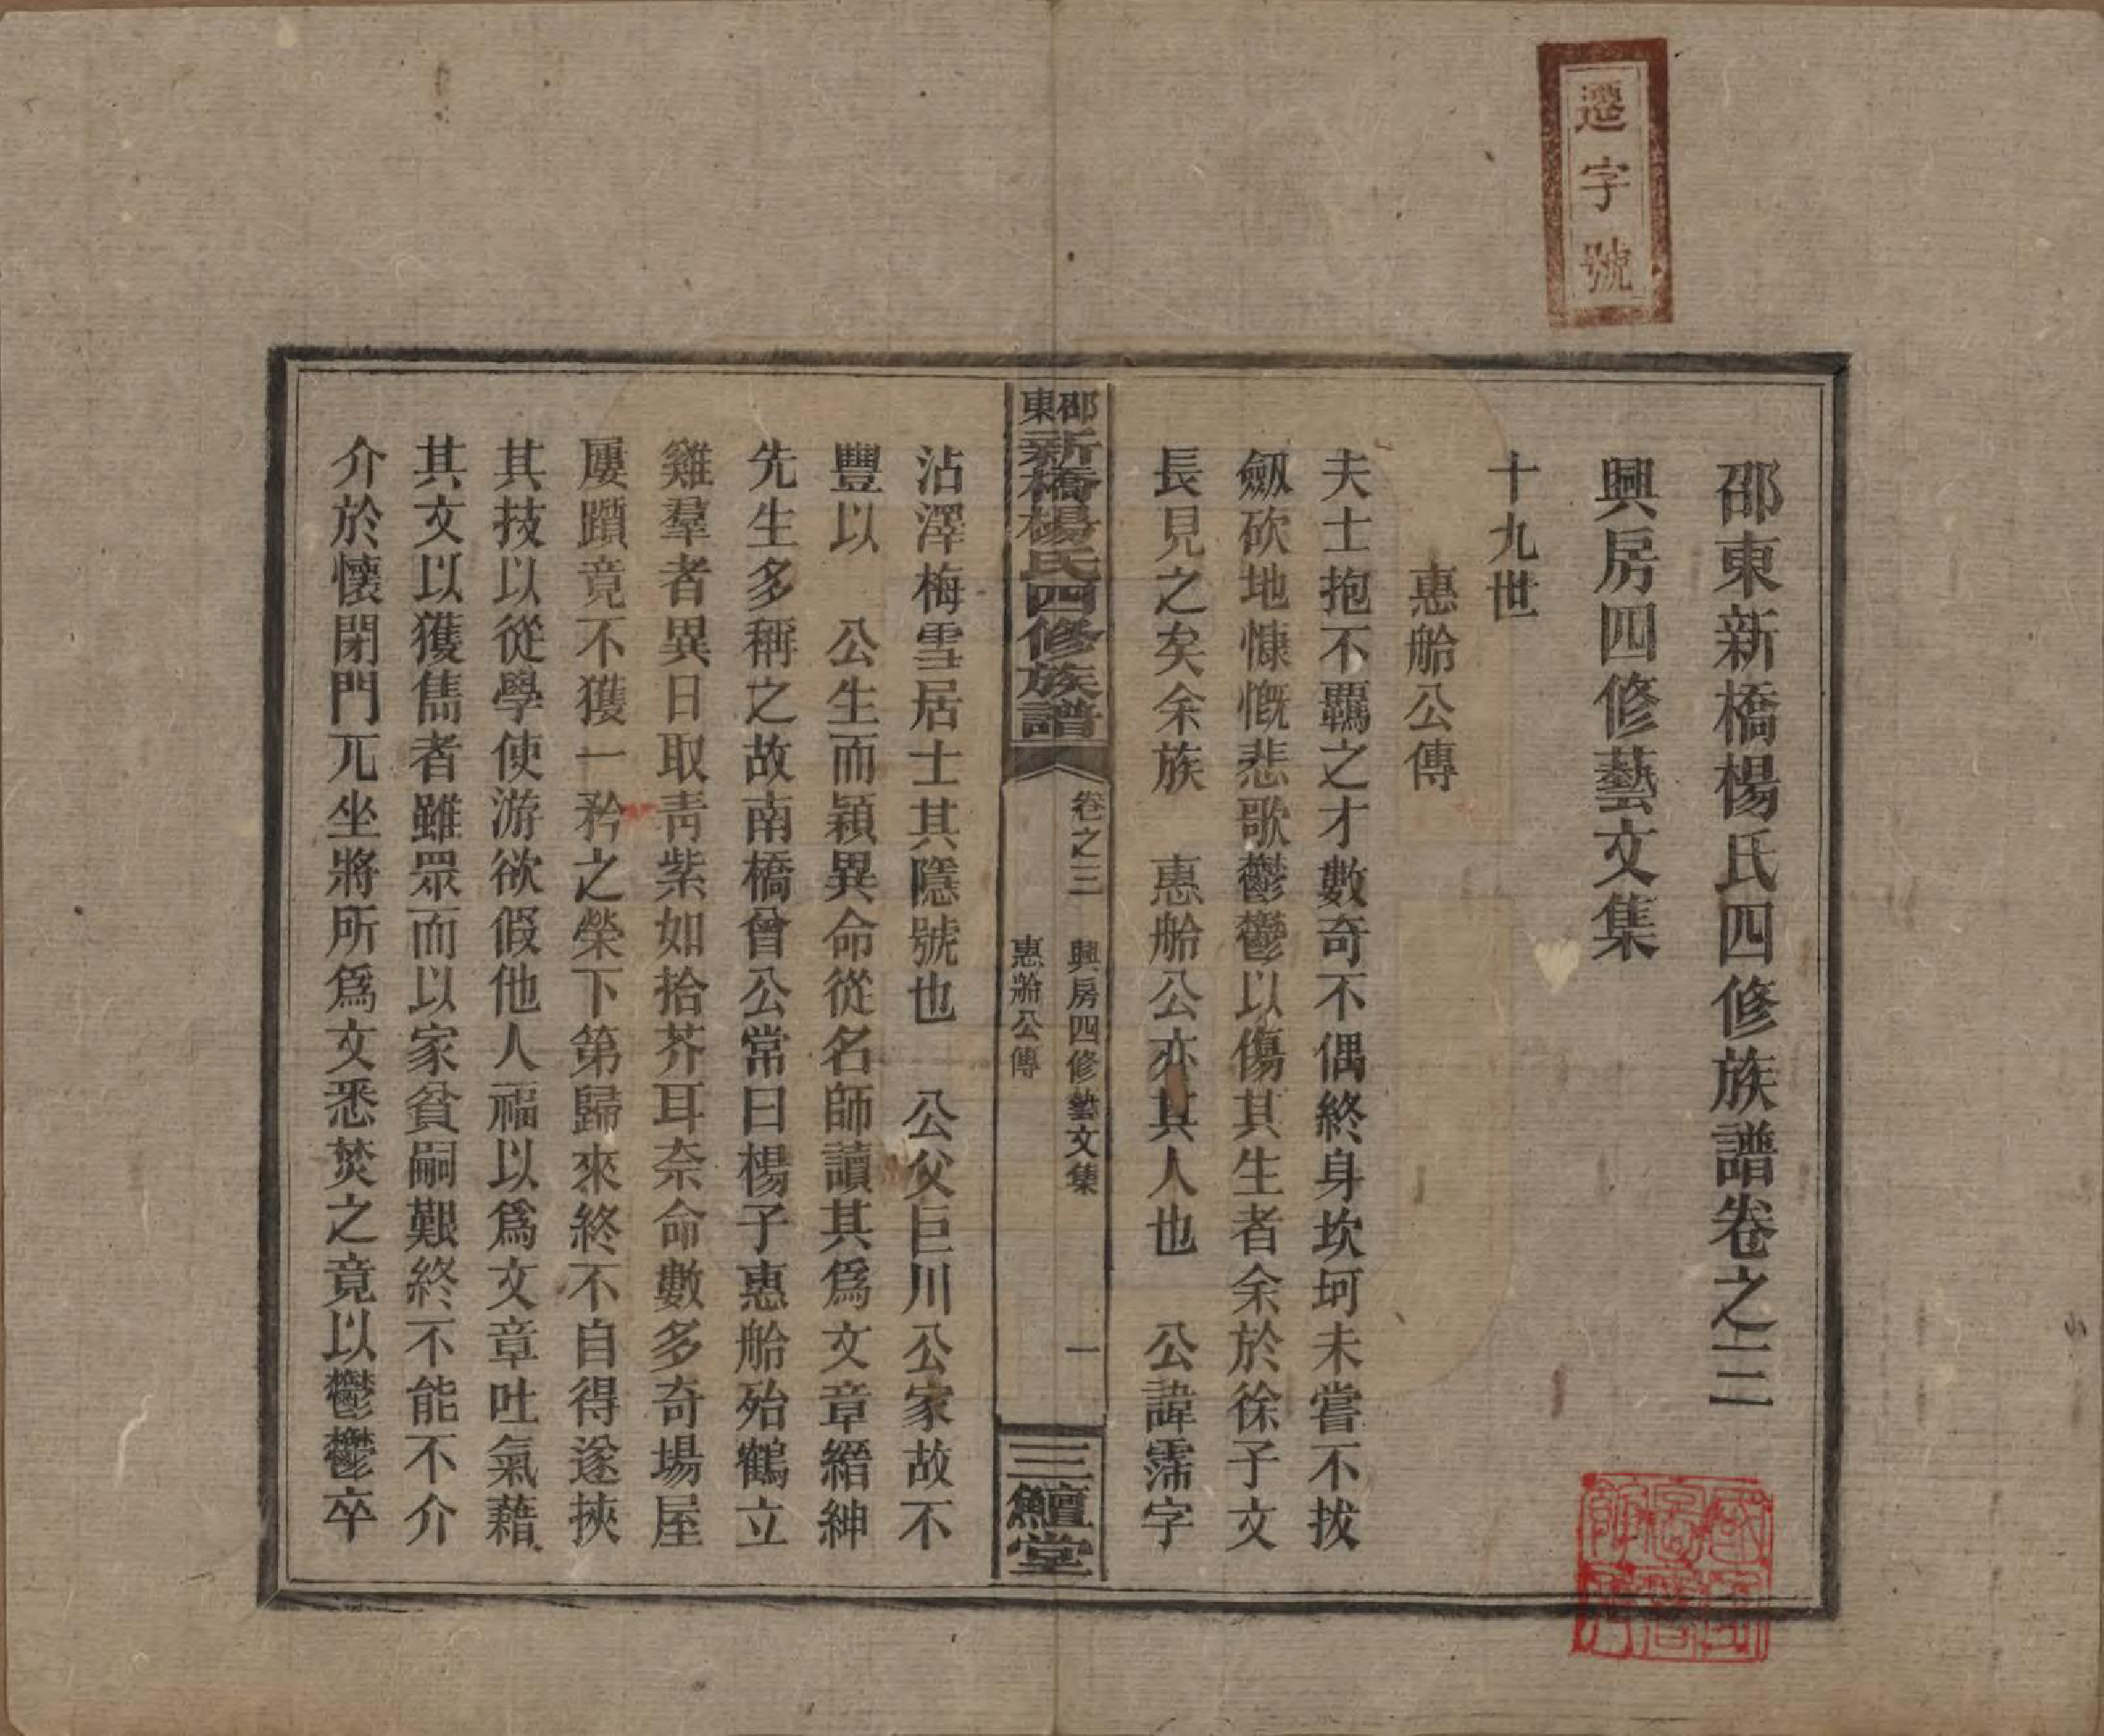 遷字號
邵東新橋楊氏四修族譜卷之三
興房四修藝文集
十九世
惠船公傳
夫士抱不羈之才數奇不偶終身坎坷未嘗不拔
劔砍地慷慨悲歌鬱鬱以傷其生者余於徐子文
長見之矣余族　惠船公亦其人也　公諱霈字
邵東新橋楊氏四修族譜
卷之三　興房四修藝文集　一
惠船公傳
三鱣堂
沾澤梅雪居士其隱號也　公父巨川公家故不
豐以　公生而穎異命從名師讀其爲文章縉紳
先生多稱之故南橋曾公常曰楊子惠船殆鶴立
雞羣者異日取靑紫如拾芥耳奈命數多奇場屋
屢躓竟不獲一矜之榮下第歸來終不自得遂挾
其技以從學使游欲假他人福以爲文章吐氣藉
其文以獲雋者雖眾而以家貧嗣艱終不能不介
介於懷閉門兀坐將所爲文悉焚之竟以鬱鬱卒